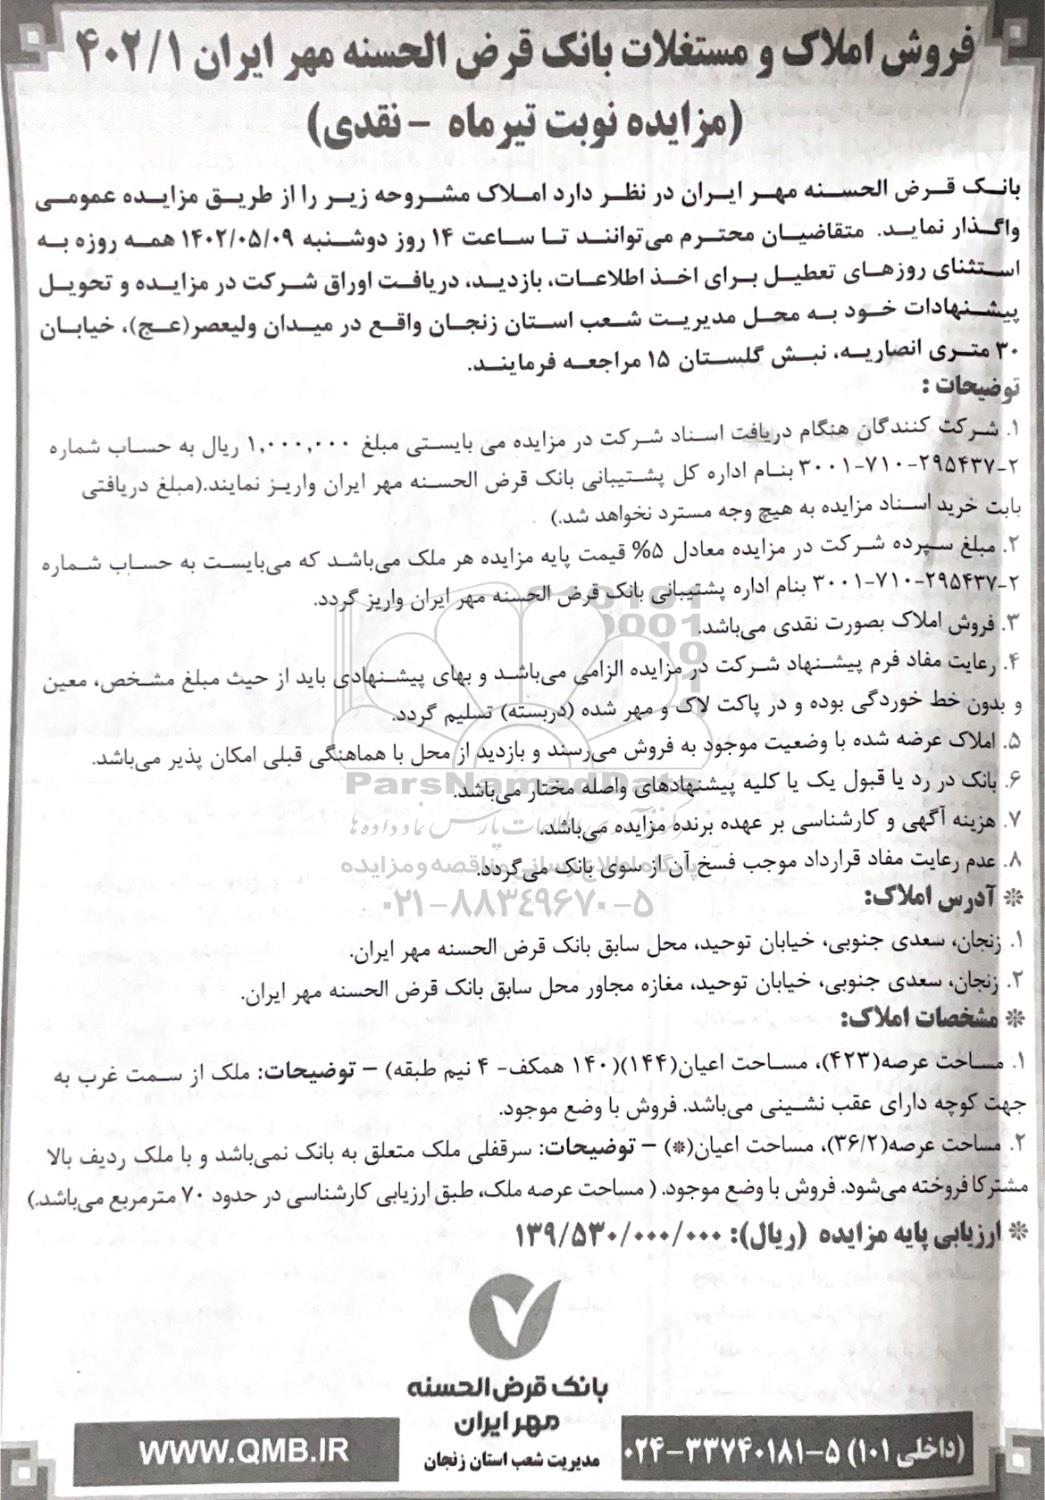 فروش املاک و مستغلات بانک قرض الحسنه مهر ایران ۴۰۲/۱
(مزایده نوبت تیرماه - نقدی)
بانک قرض الحسنه مهر ایران در نظر دارد املاک مشروحه زیر را از طریق مزایده عمومی
واگذار نماید. متقاضیان محترم می‌توانند تا ساعت ۱۴ روز دوشنبه ۱۴۰۲/۰۵/۰۹ همه روزه به
استثنای روزهای تعطیل برای اخذ اطلاعات، بازدید، دریافت اوراق شرکت در مزایده و تحویل
پیشنهادات خود به محل مدیریت شعب استان زنجان واقع در میدان ولیعصر(عج)، خیابان
۳۰ متری انصاریه، نبش گلستان ۱۵ مراجعه فرمایند.
توضیحات :
۱. شرکت کنندگان هنگام دریافت اسناد شرکت در مزایده می بایستی مبلغ ۱,۰۰۰,۰۰۰ ریال به حساب شماره
۳۰۰۱-۷۱۰-۲۹۵۴۳۷-۲ بنام اداره کل پشتیبانی بانک قرض الحسنه مهر ایران واریز نمایند.(مبلغ دریافتی
بابت خرید اسناد مزایده به هیچ وجه مسترد نخواهد شد.)
۲. مبلغ سپرده شرکت در مزایده معادل ۵% قیمت پایه مزایده هر ملک می‌باشد که می‌بایست به حساب شماره
۳۰۰۱-۷۱۰-۲۹۵۴۳۷-۲ بنام اداره پشتیبانی بانک قرض الحسنه مهر ایران واریز گردد.
۳. فروش املاک بصورت نقدی می‌باشد.
۴. رعایت مفاد فرم پیشنهاد شرکت در مزایده الزامی می‌باشد و بهای پیشنهادی باید از حیث مبلغ مشخص، معین
و بدون خط خوردگی بوده و در پاکت لاک و مهر شده (دربسته) تسلیم گردد.
۵. املاک عرضه شده با وضعیت موجود به فروش می‌رسند و بازدید از محل با هماهنگی قبلی امکان پذیر می‌باشد.
ParsNamadData
۶. بانک در رد یا قبول یک یا کلیه پیشنهادهای واصله مختار می‌باشد.
۷. هزینه آگهی و کارشناسی بر عهده برنده مزایده می‌باشد.
۸. عدم رعایت مفاد قرارداد موجب فسخ آن از سوی بانک می‌گردد.
پایگاه اطلاع رسانی مناقصه و مزایده
۰۲۱-۸۸۳۴۹۶۷۰-۵
❋ آدرس املاک:
۱. زنجان، سعدی جنوبی، خیابان توحید، محل سابق بانک قرض الحسنه مهر ایران.
۲. زنجان، سعدی جنوبی، خیابان توحید، مغازه مجاور محل سابق بانک قرض الحسنه مهر ایران.
❋ مشخصات املاک:
۱. مساحت عرصه(۴۲۳)، مساحت اعیان(۱۴۴)(۱۴۰ همکف- ۴ نیم طبقه) – توضیحات: ملک از سمت غرب به
جهت کوچه دارای عقب نشینی می‌باشد. فروش با وضع موجود.
۲. مساحت عرصه(۳۶/۲)، مساحت اعیان(❋) – توضیحات: سرقفلی ملک متعلق به بانک نمی‌باشد و با ملک ردیف بالا
مشترکا فروخته می‌شود. فروش با وضع موجود. ( مساحت عرصه ملک، طبق ارزیابی کارشناسی در حدود ۷۰ مترمربع می‌باشد.)
❋ ارزیابی پایه مزایده (ریال): ۱۳۹/۵۳۰/۰۰۰/۰۰۰
بانک قرض الحسنه
مهر ایران
مدیریت شعب استان زنجان
۰۲۴-۳۳۷۴۰۱۸۱-۵ (داخلی ۱۰۱)
WWW.QMB.IR